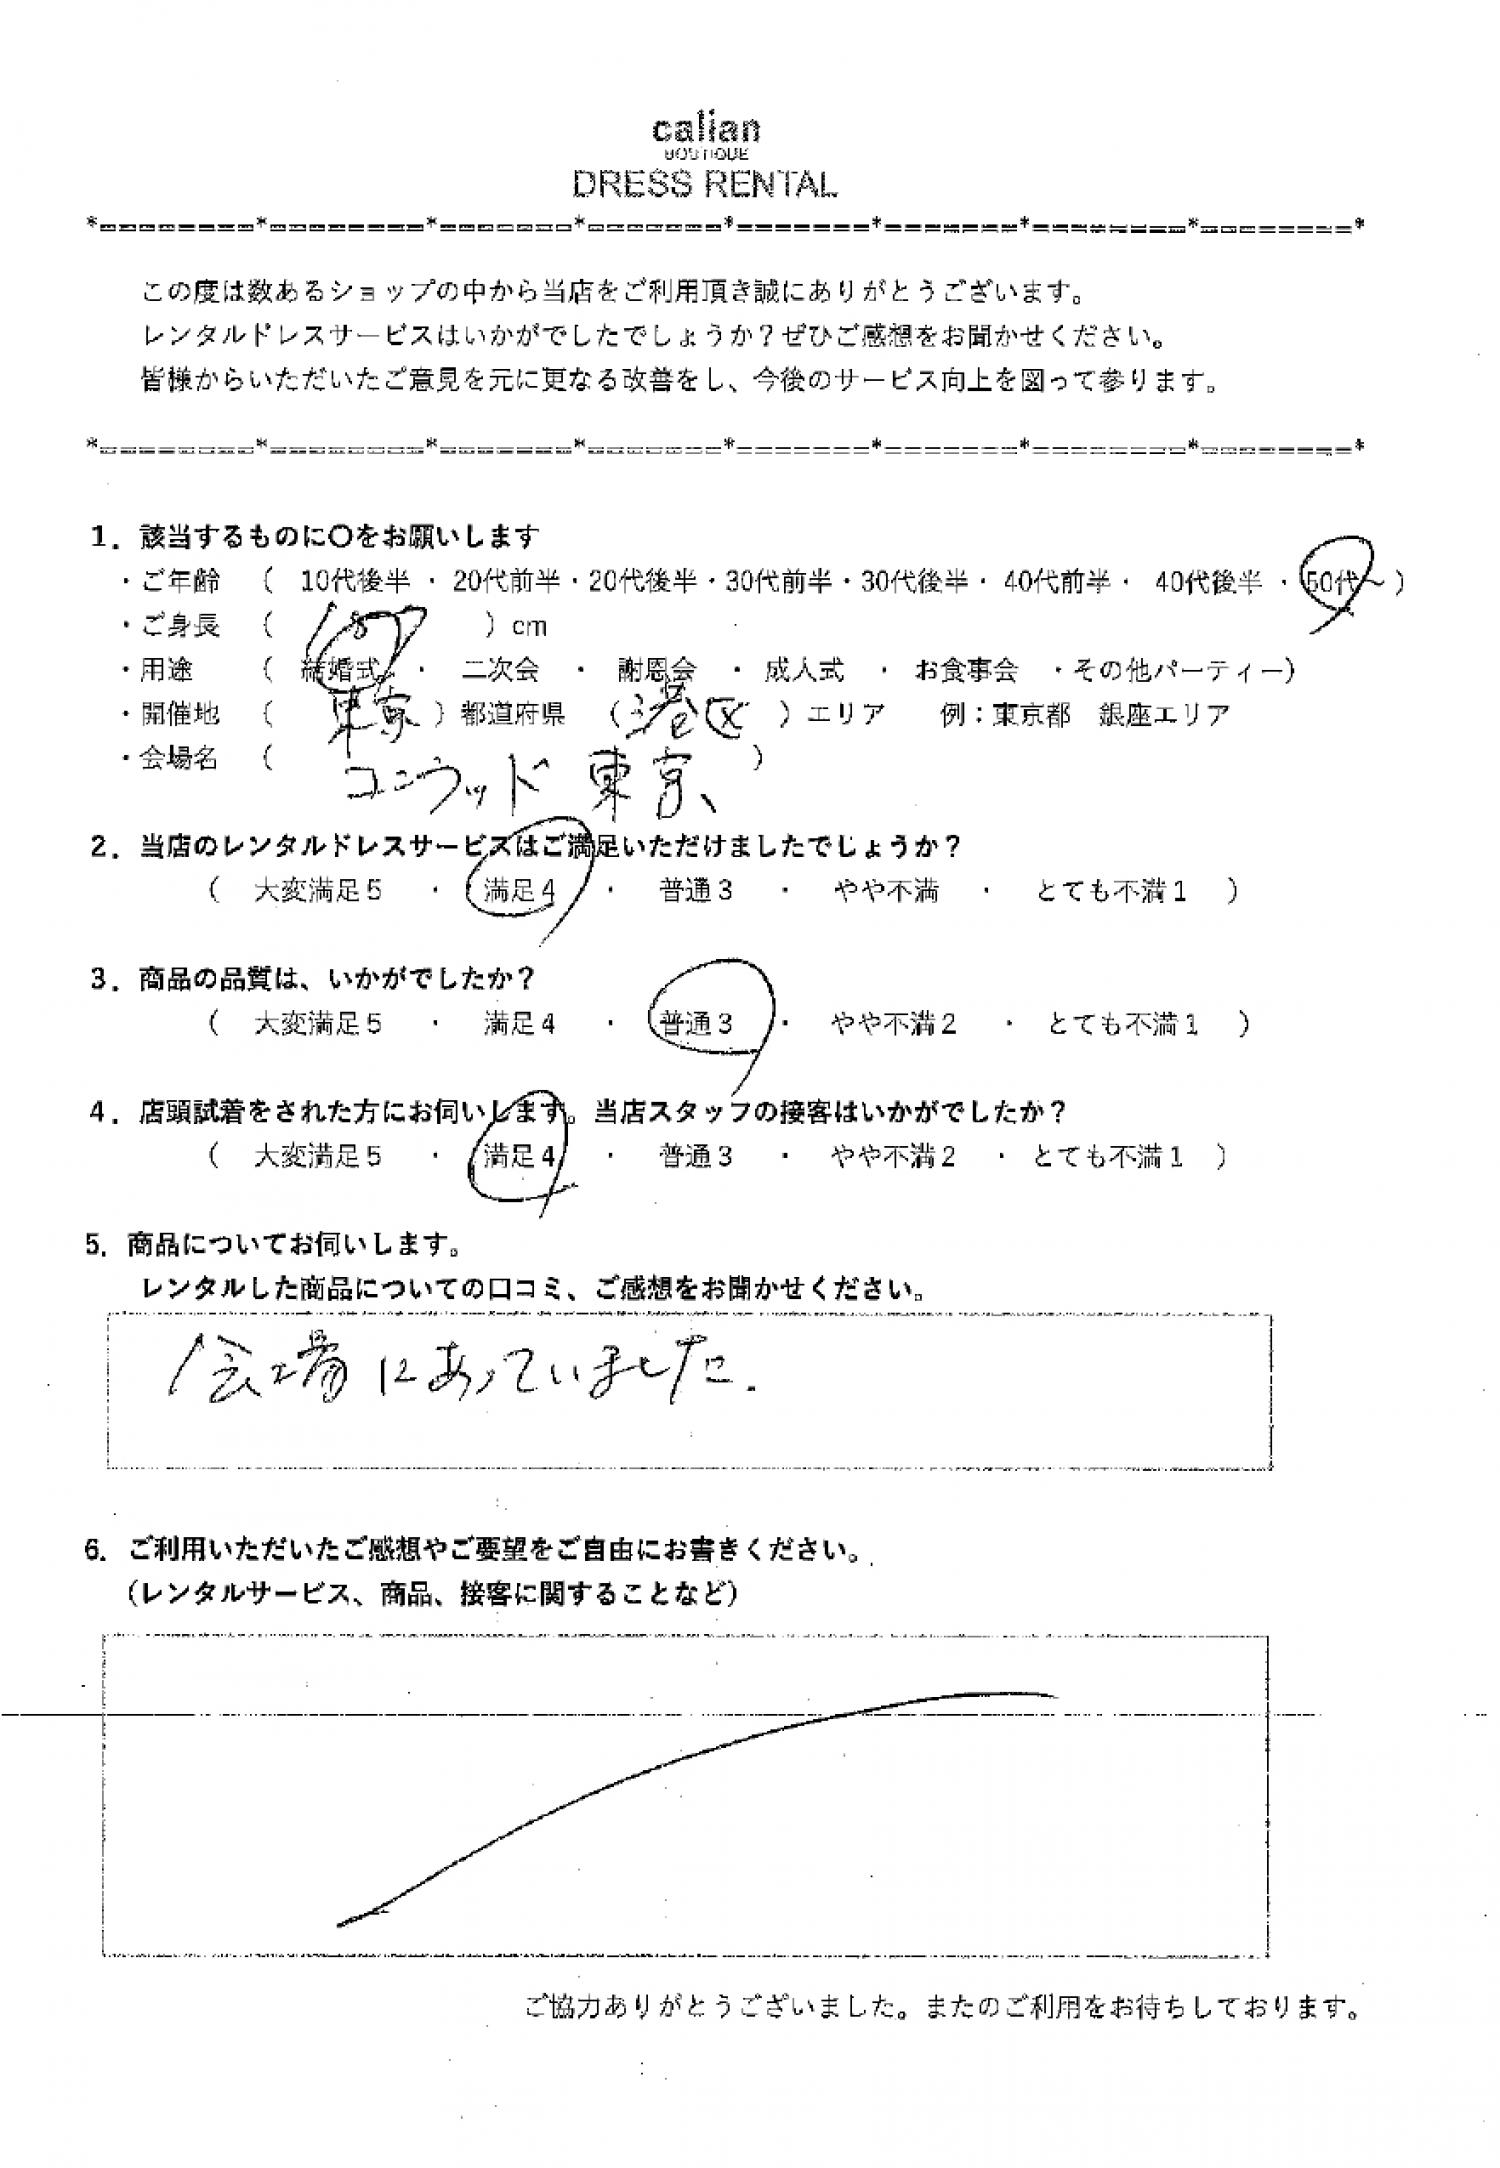 calian
BOUTIQUE
DRESS RENTAL
*========*========*=======*=======*=======*=======*========*========*
この度は数あるショップの中から当店をご利用頂き誠にありがとうございます。
レンタルドレスサービスはいかがでしたでしょうか？ぜひご感想をお聞かせください。
皆様からいただいたご意見を元に更なる改善をし、今後のサービス向上を図って参ります。
*========*========*=======*=======*=======*=======*========*========*
1．該当するものに〇をお願いします
・ご年齢 （ 10代後半 ・ 20代前半・20代後半・30代前半・30代後半・ 40代前半・ 40代後半 ・50代～ ）
・ご身長 （ ）cm
・用途 （ 結婚式 ・ 二次会 ・ 謝恩会 ・ 成人式 ・ お食事会 ・その他パーティー）
・開催地 （ 東京 ）都道府県 （ 港区 ）エリア 例：東京都 銀座エリア
・会場名 （ コンラッド 東京、 ）
2．当店のレンタルドレスサービスはご満足いただけましたでしょうか？
（ 大変満足５ ・ 満足４ ・ 普通３ ・ やや不満 ・ とても不満１ ）
3．商品の品質は、いかがでしたか？
（ 大変満足５ ・ 満足４ ・ 普通３ ・ やや不満２ ・ とても不満１ ）
4．店頭試着をされた方にお伺いします。当店スタッフの接客はいかがでしたか？
（ 大変満足５ ・ 満足４ ・ 普通３ ・ やや不満２ ・ とても不満１ ）
5．商品についてお伺いします。
レンタルした商品についての口コミ、ご感想をお聞かせください。
会場にあっていました.
6．ご利用いただいたご感想やご要望をご自由にお書きください。
（レンタルサービス、商品、接客に関することなど）
ご協力ありがとうございました。またのご利用をお待ちしております。